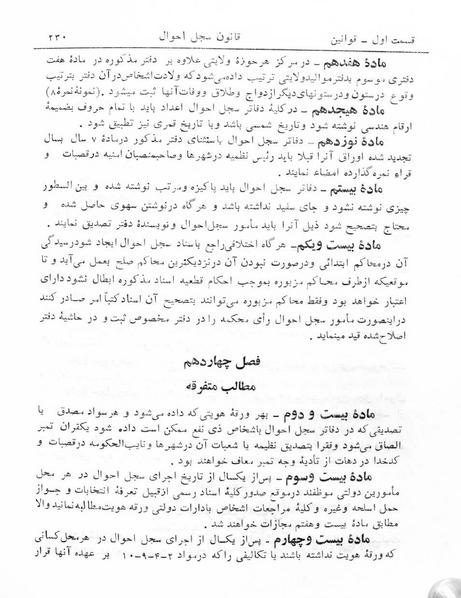 قسمت اول ـ قوانین قانون سجل احوال ۲۳۰
مادهٔ هفدهم ـ در مرکز هر حوزهٔ ولایتی علاوه بر دفتر مذکوره در مادهٔ هفت
دفتری موسوم بدفتر موالید ولایتی ترتیب داده میشود که ولادت اشخاص در آن دفتر بترتیب
وقوع درستون و درستونهای دیگر ازدواج وطلاق ووفات آنها ثبت میشود (نمونهٔ نمرهٔ ۸)
مادهٔ هیجدهم ـ در کلیهٔ دفاتر سجل احوال اعداد باید با تمام حروف بضمیمهٔ
ارقام هندسی نوشته شود وتاریخ شمسی باشد وبا تاریخ قمری نیز تطبیق شود .
مادهٔ نوزدهم ـ دفاتر سجل احوال باستثنای دفتر مذکور درمادهٔ ۷ سال بسال
تجدید شده اوراق آنرا قبلا باید رئیس نظمیه درشهرها وصاحبمنصبان امنیه درقصبات و
قراء نمره گذارده امضاء نمایند .
مادهٔ بیستم ـ دفاتر سجل احوال باید پاکیزه ومرتب نوشته شده و بین السطور
چیزی نوشته نشود و جای سفید نداشته باشد و هرگاه درنوشتن سهوی حاصل شده و
محتاج بتصحیح شود ذیل آنرا باید مأمور سجل احوال و نویسندهٔ دفتر تصدیق نمایند .
مادهٔ بیست ویکم ـ هرگاه اختلافی راجع باسناد سجل احوال ایجاد شود رسیدگی
آن درمحاکم ابتدائی ودرصورت نبودن آن درنزدیکترین محاکم صلح بعمل می‌آید و تا
موقعیکه ازطرف محاکم مزبوره بموجب احکام قطعیه اسناد مذکوره ابطال نشود دارای
اعتبار خواهد بود وفقط محاکم مزبوره می‌توانند بتصحیح آن اسناد کتباً امر صادر کنند
دراینصورت مأمور سجل احوال رأی محکمه را در دفتر مخصوص ثبت و در حاشیهٔ دفتر
اصلاح شده قید مینماید .
فصل چهاردهم
مطالب متفرقه
مادهٔ بیست و دوم ـ بهر ورقهٔ هویتی که داده می‌شود و هرسواد مصدق یا
تصدیقی که در دفاتر سجل احوال باشخاص ذی نفع ممکن است داده شود یکقران تمبر
الصاق می‌شود وفقرا بتصدیق نظمیه با شعبات آن درشهرها و نایب‌الحکومه درقصبات و
کدخدا در دهات از تأدیهٔ وجه تمبر معاف خواهند بود .
مادهٔ بیست وسوم ـ پس از یکسال از تاریخ اجرای سجل احوال در هر محل
مأمورین دولتی موظفند درموقع صدور کلیهٔ اسناد رسمی ازقبیل تعرفهٔ انتخابات و جواز
حمل اسلحه وغیره وکلیهٔ مراجعات اشخاص بادارات دولتی ورقه هویت مطالبه نمایند والا
مطابق مادهٔ بیست و هفتم مجازات خواهند شد .
مادهٔ بیست وچهارم ـ پس از یکسال از اجرای سجل احوال در هرمحل کسانی
که ورقهٔ هویت نداشته باشند با تکالیفی را که درمواد ۲-۴-۹-۱۰ بر عهده آنها قرار